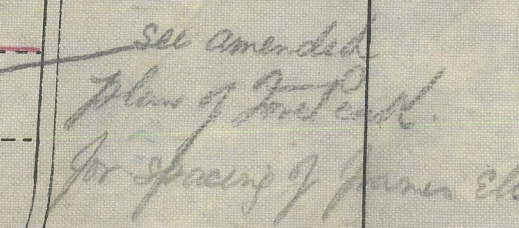 see amended
plan of Fore Peak.
for spacing of frames